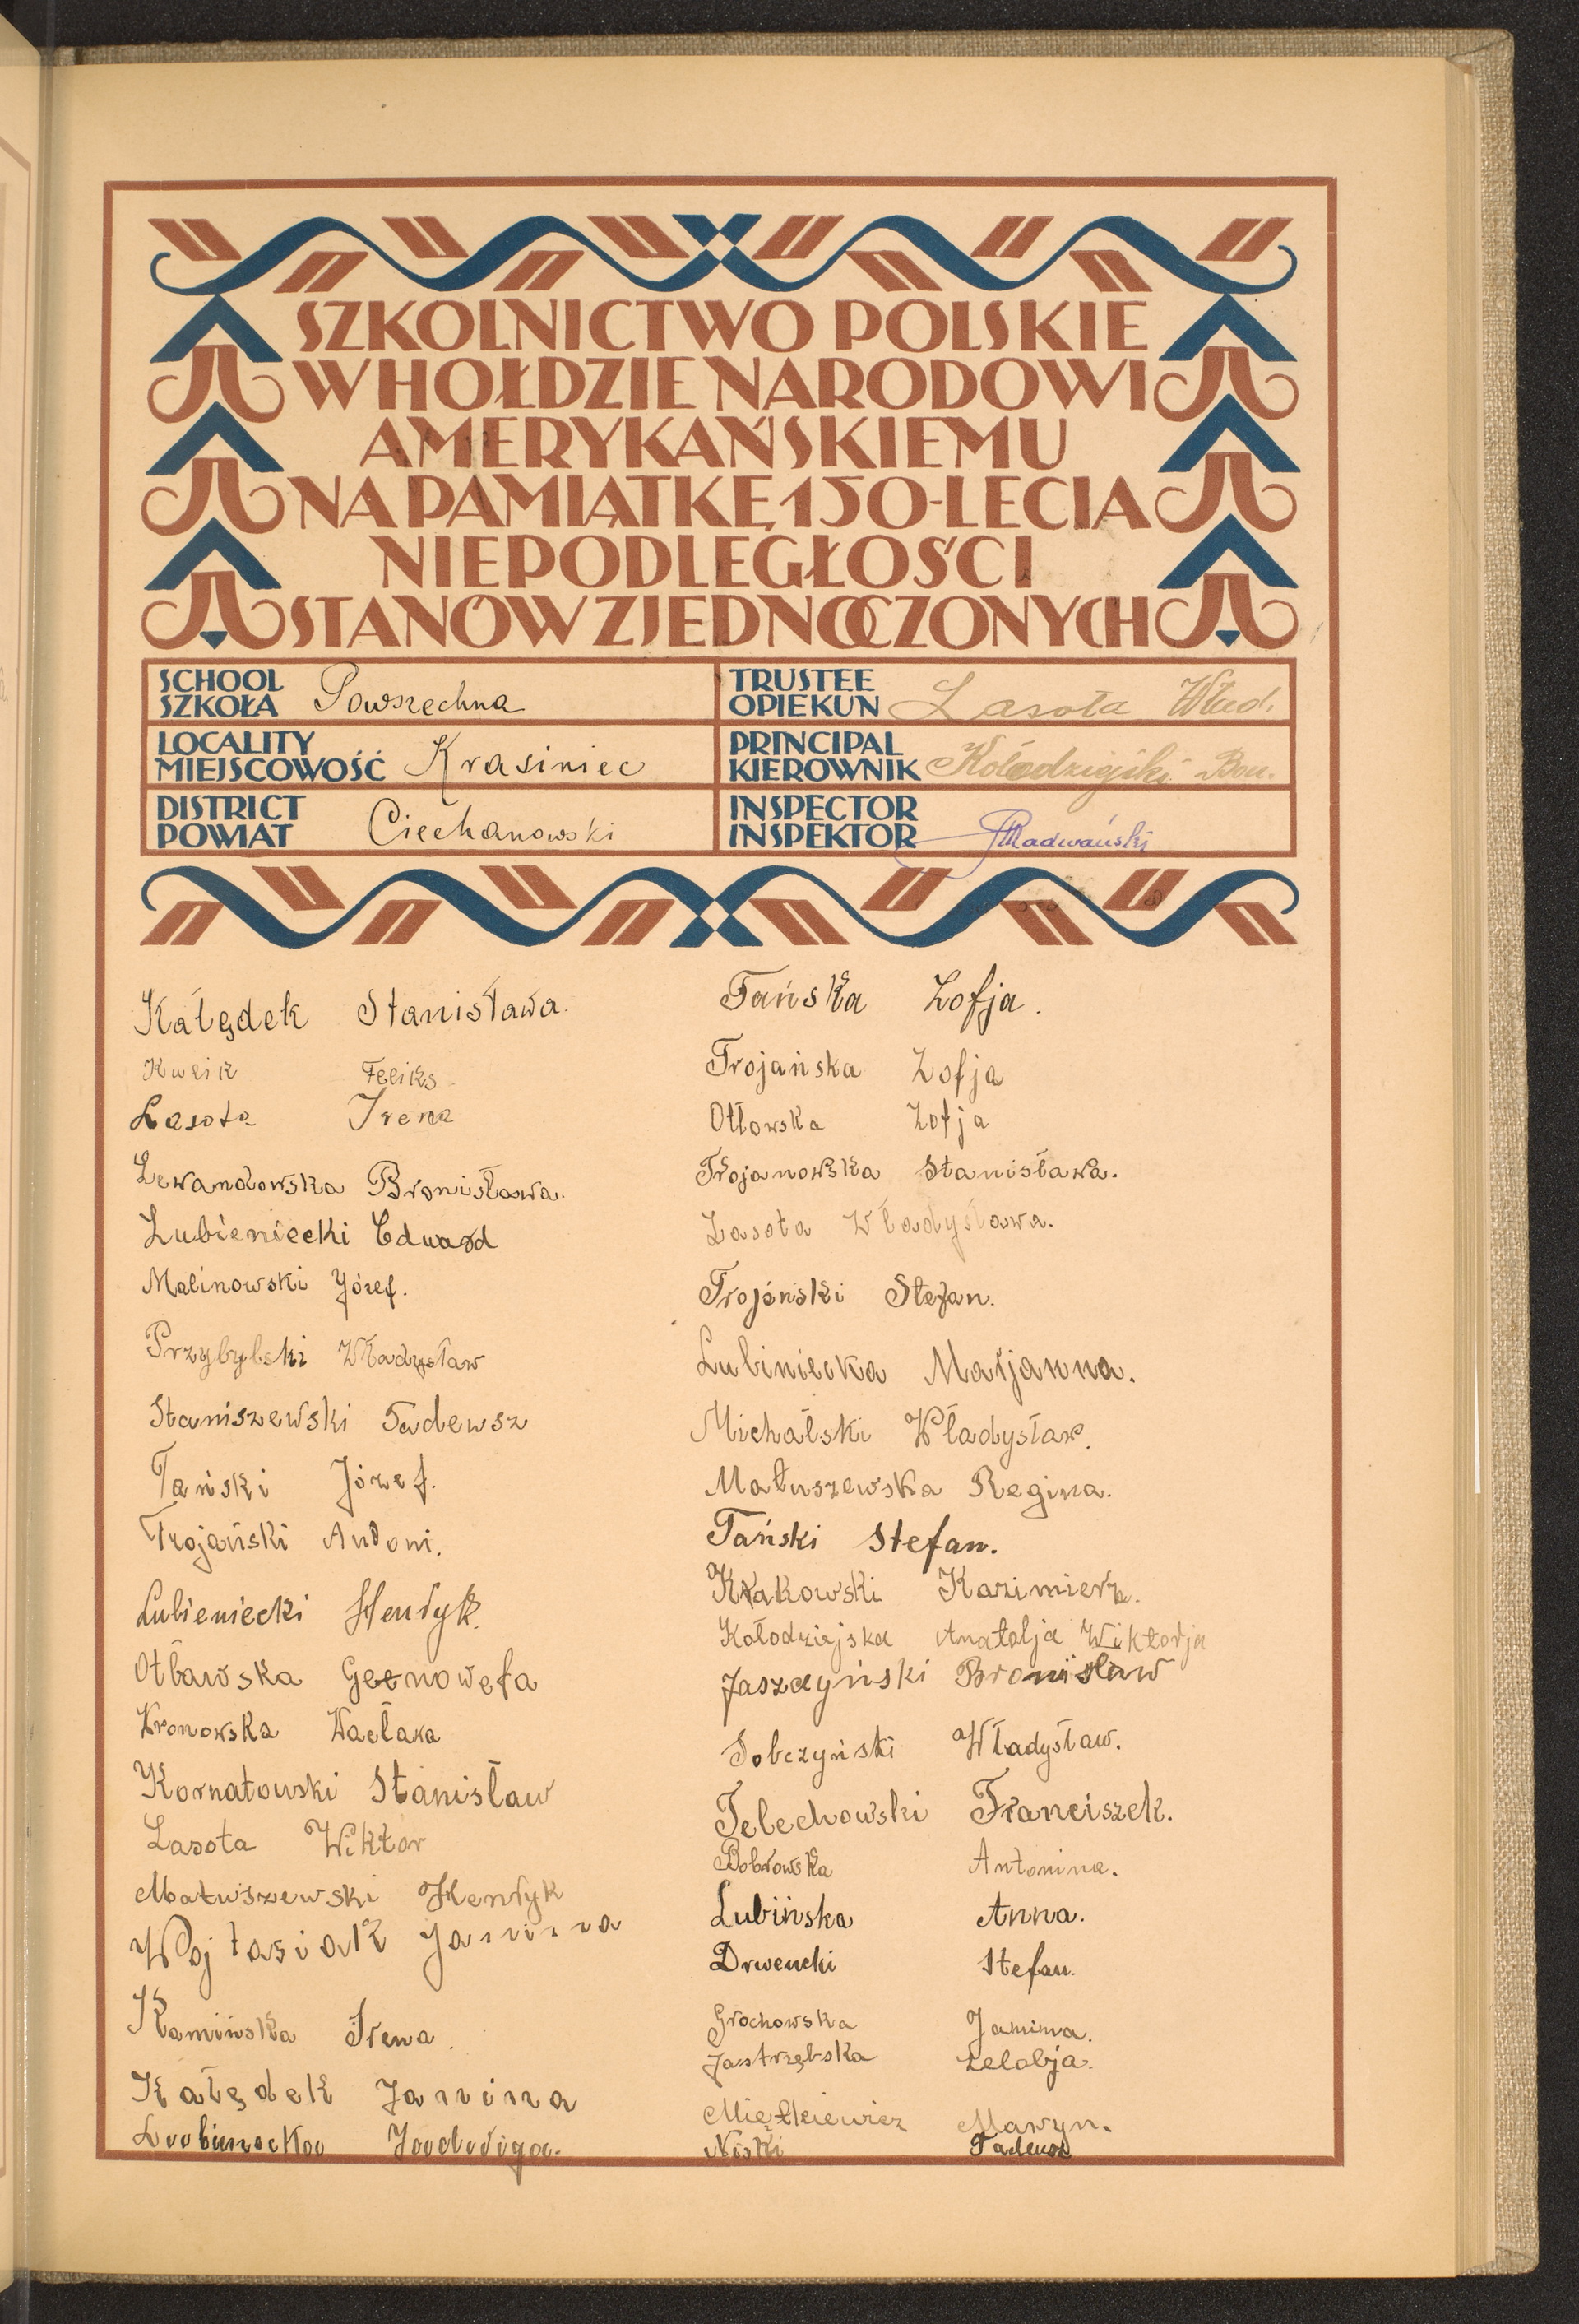 SZKOLNICTWO POLSKIE
W HOŁDZIE NARODOWI
AMERYKAŃSKIEMU
NA PAMIĄTKĘ 150-LECIA
NIEPODLEGŁOŚCI
STANÓW ZJEDNOCZONYCH
SCHOOL
SZKOŁA Powszechna
TRUSTEE
OPIEKUN Lasota Wład.
LOCALITY
MIEJSCOWOŚĆ Krasiniec
PRINCIPAL
KIEROWNIK Kołodziejski Bon.
DISTRICT
POWIAT Ciechanowski
INSPECTOR
INSPEKTOR Radwański
Kałędek Stanisława.
Kweik Feliks
Lasota Irena
Lewandowska Bronisława.
Lubieniecki Edward
Malinowski Józef.
Przybylski Władysław
Staniszewski Tadewsz
Tański Józef.
Trojański Antoni.
Lubieniecki Henryk.
Otławska Genowefa
Kronowska Wacława
Kornatowski Stanisław
Lasota Wiktor
Matuszewski Henryk
Wojtasiak Janina
Kamińska Irena.
Kałędek Janina
Lubieniecka Jadwiga.
Tańska Zofja.
Trojańska Zofja
Otłowska Zofja
Trojanowska Stanisława.
Lasota Władysława.
Trojański Stefan.
Lubiniecka Marjanna.
Michalski Władysław.
Matuszewska Regina.
Tański Stefan.
Krakowski Kazimierz.
Kołodziejska Anatolja Wiktorja
Jaszczyński Bronisław
Sobczyński Władysław.
Telechowski Franciszek.
Bobrowska Antonina.
Lubińska Anna.
Drwencki Stefan.
Grochowska Janina.
Jastrzębska
Marjan.
Niski Tadeusz